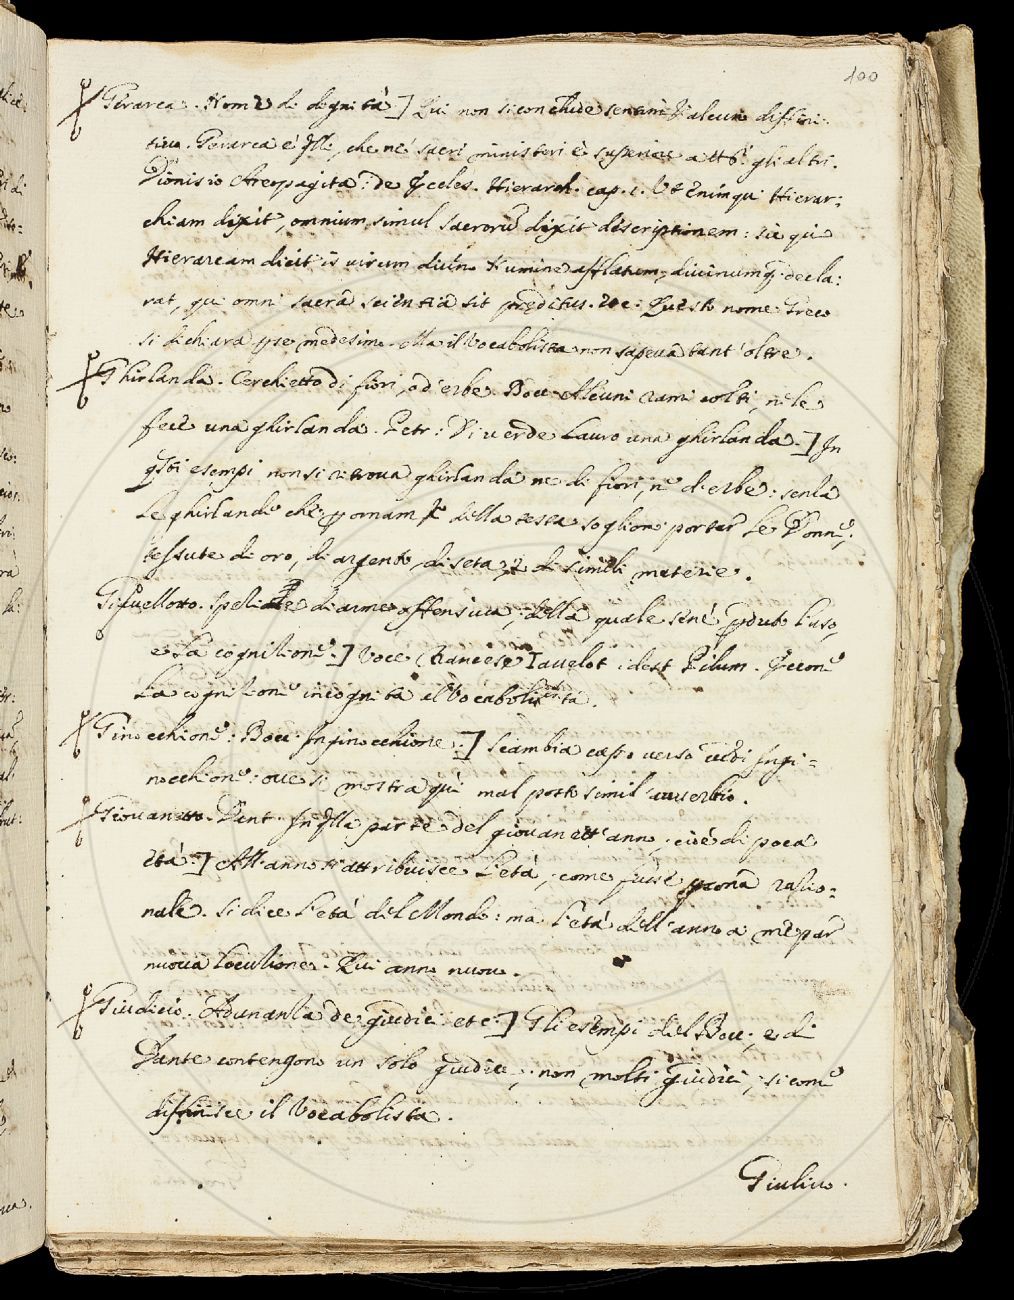 100
Gerarca. Nome di dignità.] Qui non si conchiude sentimento alcun diffini-
tivo. Gerarca è qllo, che ne' sacri ministeri è superiore a tt̃i gli altri.
Dionisio Areopagita: de Eccles. Hierarch. cap. 1. Ut enim qui Hierar:
chiam dixit, omnium simul sacrorũ dixit descriptionem: sic qui
Hierarcam dicit is virum divino Numine afflatum, divinumq̃ decla:
rat, qui omni sacra scientia sit prẹditus. etc. Questo nome Greco
si dichiara p se medesimo. Ma il Vocabolista non sapeva tant'oltre.
Ghirlanda. Cerchietto di fiori, o d'erbe. Bocc. Alcuni rami colti, ne le
fece una ghirlanda. Petr: Di verde Lauro una ghirlanda.] In
qsti esempi non si ritrova ghirlanda ne di fiori, ne d'erbe: senza
Le ghirlande che p ornam.to della testa sogliono portar le Donne,
tessute di oro, di argento, di seta, e di simili materie.
Giavellotto. Spelie di arme offensiva; della quale se n'è pduto l'uso,
e La cognizione.] Voce Francese Javelot: idest Pilum. E come
La cognizione incognita al Vocabolista.
Ginocchione: Bocc. Inginocchione.] Scambia corpo verso vedi Ingi=
nocchione: ove si mostra qui mal posto simil' avverbio.
Giovanetto. Dant. In qlla parte del giovanett'anno. cioè di poca
età.] All'anno s'attribuisce l'età, come fusse psona razio-
nale. Si dice l'età del Mondo: ma l'età dell'anno a me par
nuova locuzione. Qui anno nuovo.
Giudicio. Adunanza de giudici etc.] Gli esempi del Bocc: e di
Dante contengono un solo giudice, non molti giudici, sicome
diffinisce il Vocabolista.
Giulivo.